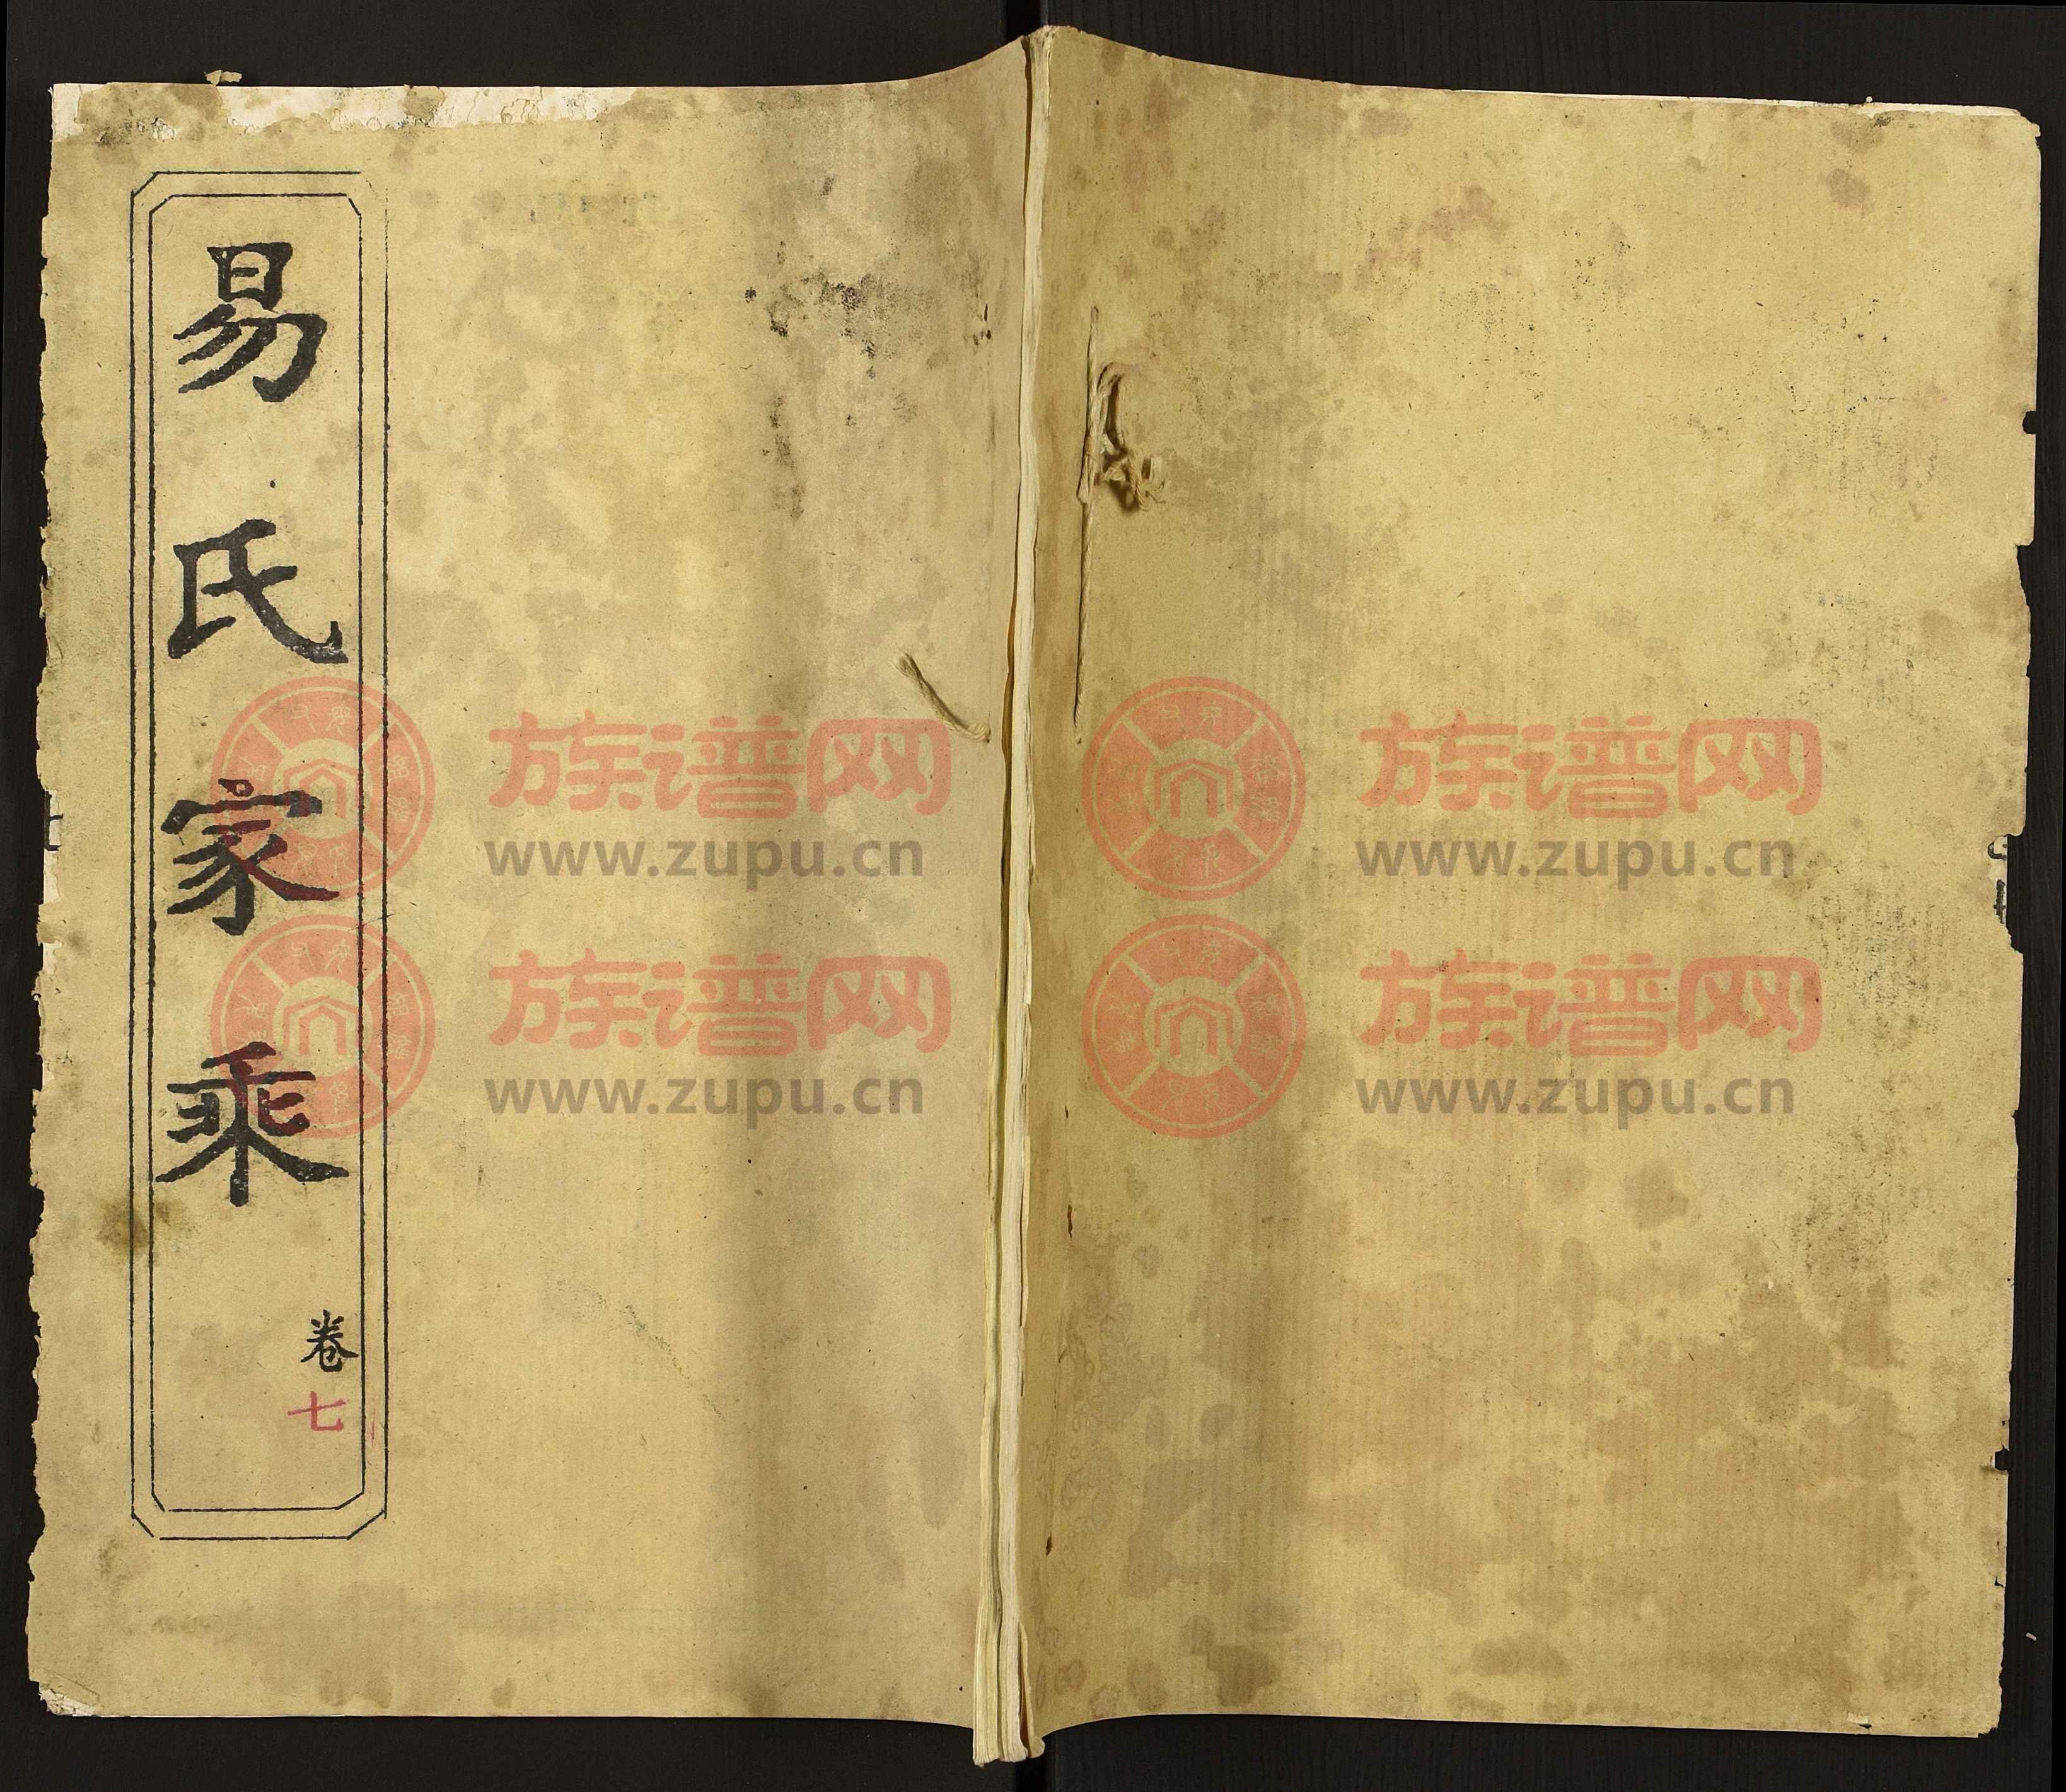 易氏家乘
卷七
族谱网
www.zupu.cn
族谱网
www.zupu.cn
族谱网
www.zupu.cn
族谱网
www.zupu.cn